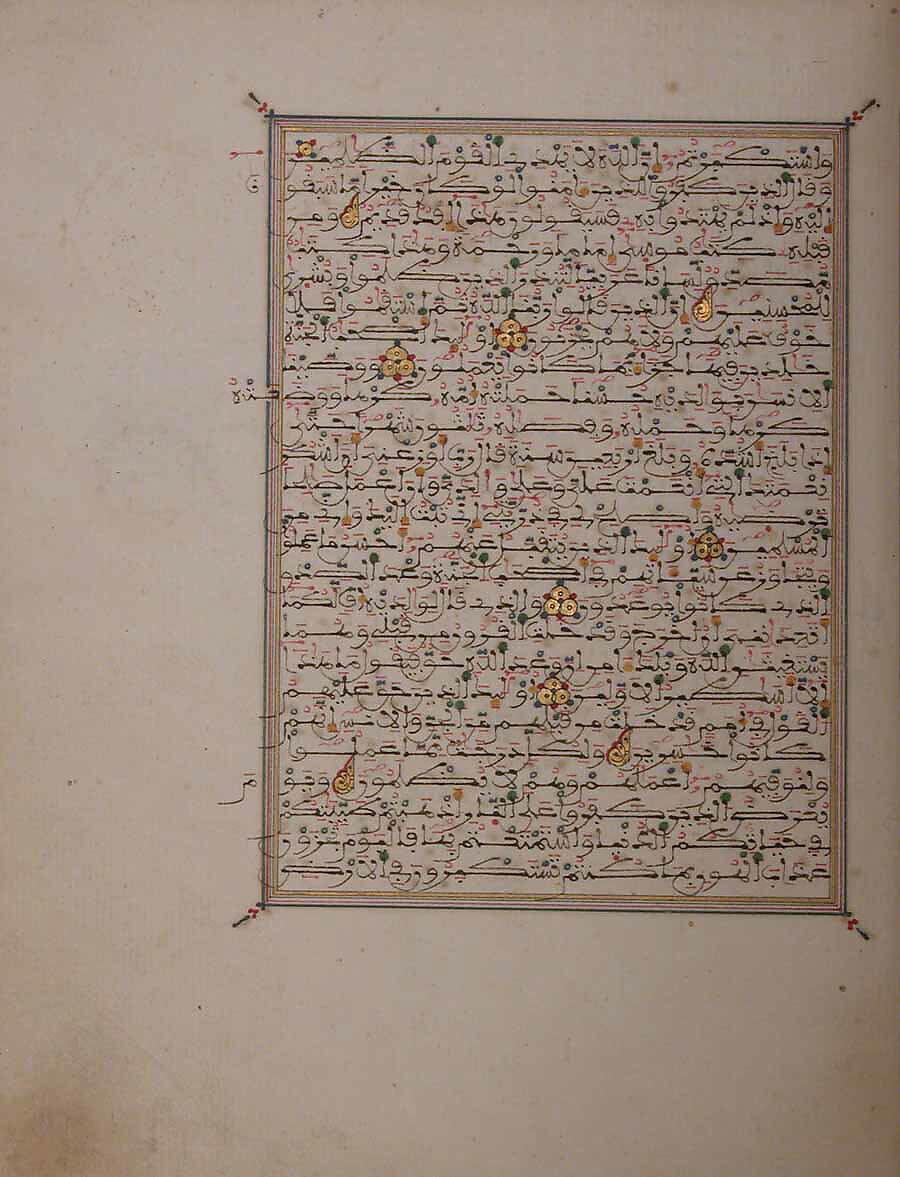 واستكبرتم إن الله لا يهدي القوم الظلمين
وقال الذين كفروا للذين ءامنوا لو كان خيرا ما سبقونا
إليه وإذ لم يهتدوا به فسيقولون هذا إفك قديم ومن
قبله كتب موسى إماما ورحمة وهذا كتب
مصدق لسانا عربيا لتنذر الذين ظلموا وبشرى
للمحسنين إن الذين قالوا ربنا الله ثم استقموا فلا
خوف عليهم ولا هم يحزنون أولئك أصحب الجنة
خلدين فيها جزاء بما كانوا يعملون ووصينا
الانسن بولديه حسنا حملته أمه كرها ووضعته
كرها وحمله وفصله ثلثون شهرا حتى
إذا بلغ أشده وبلغ أربعين سنة قال رب أوزعني أن أشكر
نعمتك التي أنعمت علي وعلى ولدي وأن أعمل صلحا
ترضيه وأصلح لي في ذريتي إني تبت إليك وإني من
المسلمين أولئك الذين يتقبل عنهم أحسن ما عملوا
ويتجاوز عن سيئاتهم في أصحب الجنة وعد الصدق
الذي كانوا يوعدون والذي قال لولديه أف لكما
أتعدانني أن أخرج وقد خلت القرون من قبلي وهما
يستغيثن الله ويلك ءامن إن وعد الله حق فيقول ما هذا
إلا أسطير الاولين أولئك الذين حق عليهم
القول في أمم قد خلت من قبلهم من الجن والانس إنهم
كانوا خسرين ولكل درجت مما عملوا
ولنوفيهم أعملهم وهم لا يظلمون ويوم
يعرض الذين كفروا على النار أذهبتم طيبتكم
في حياتكم الدنيا واستمتعتم بها فاليوم تجزون
عذاب الهون بما كنتم تستكبرون في الارض